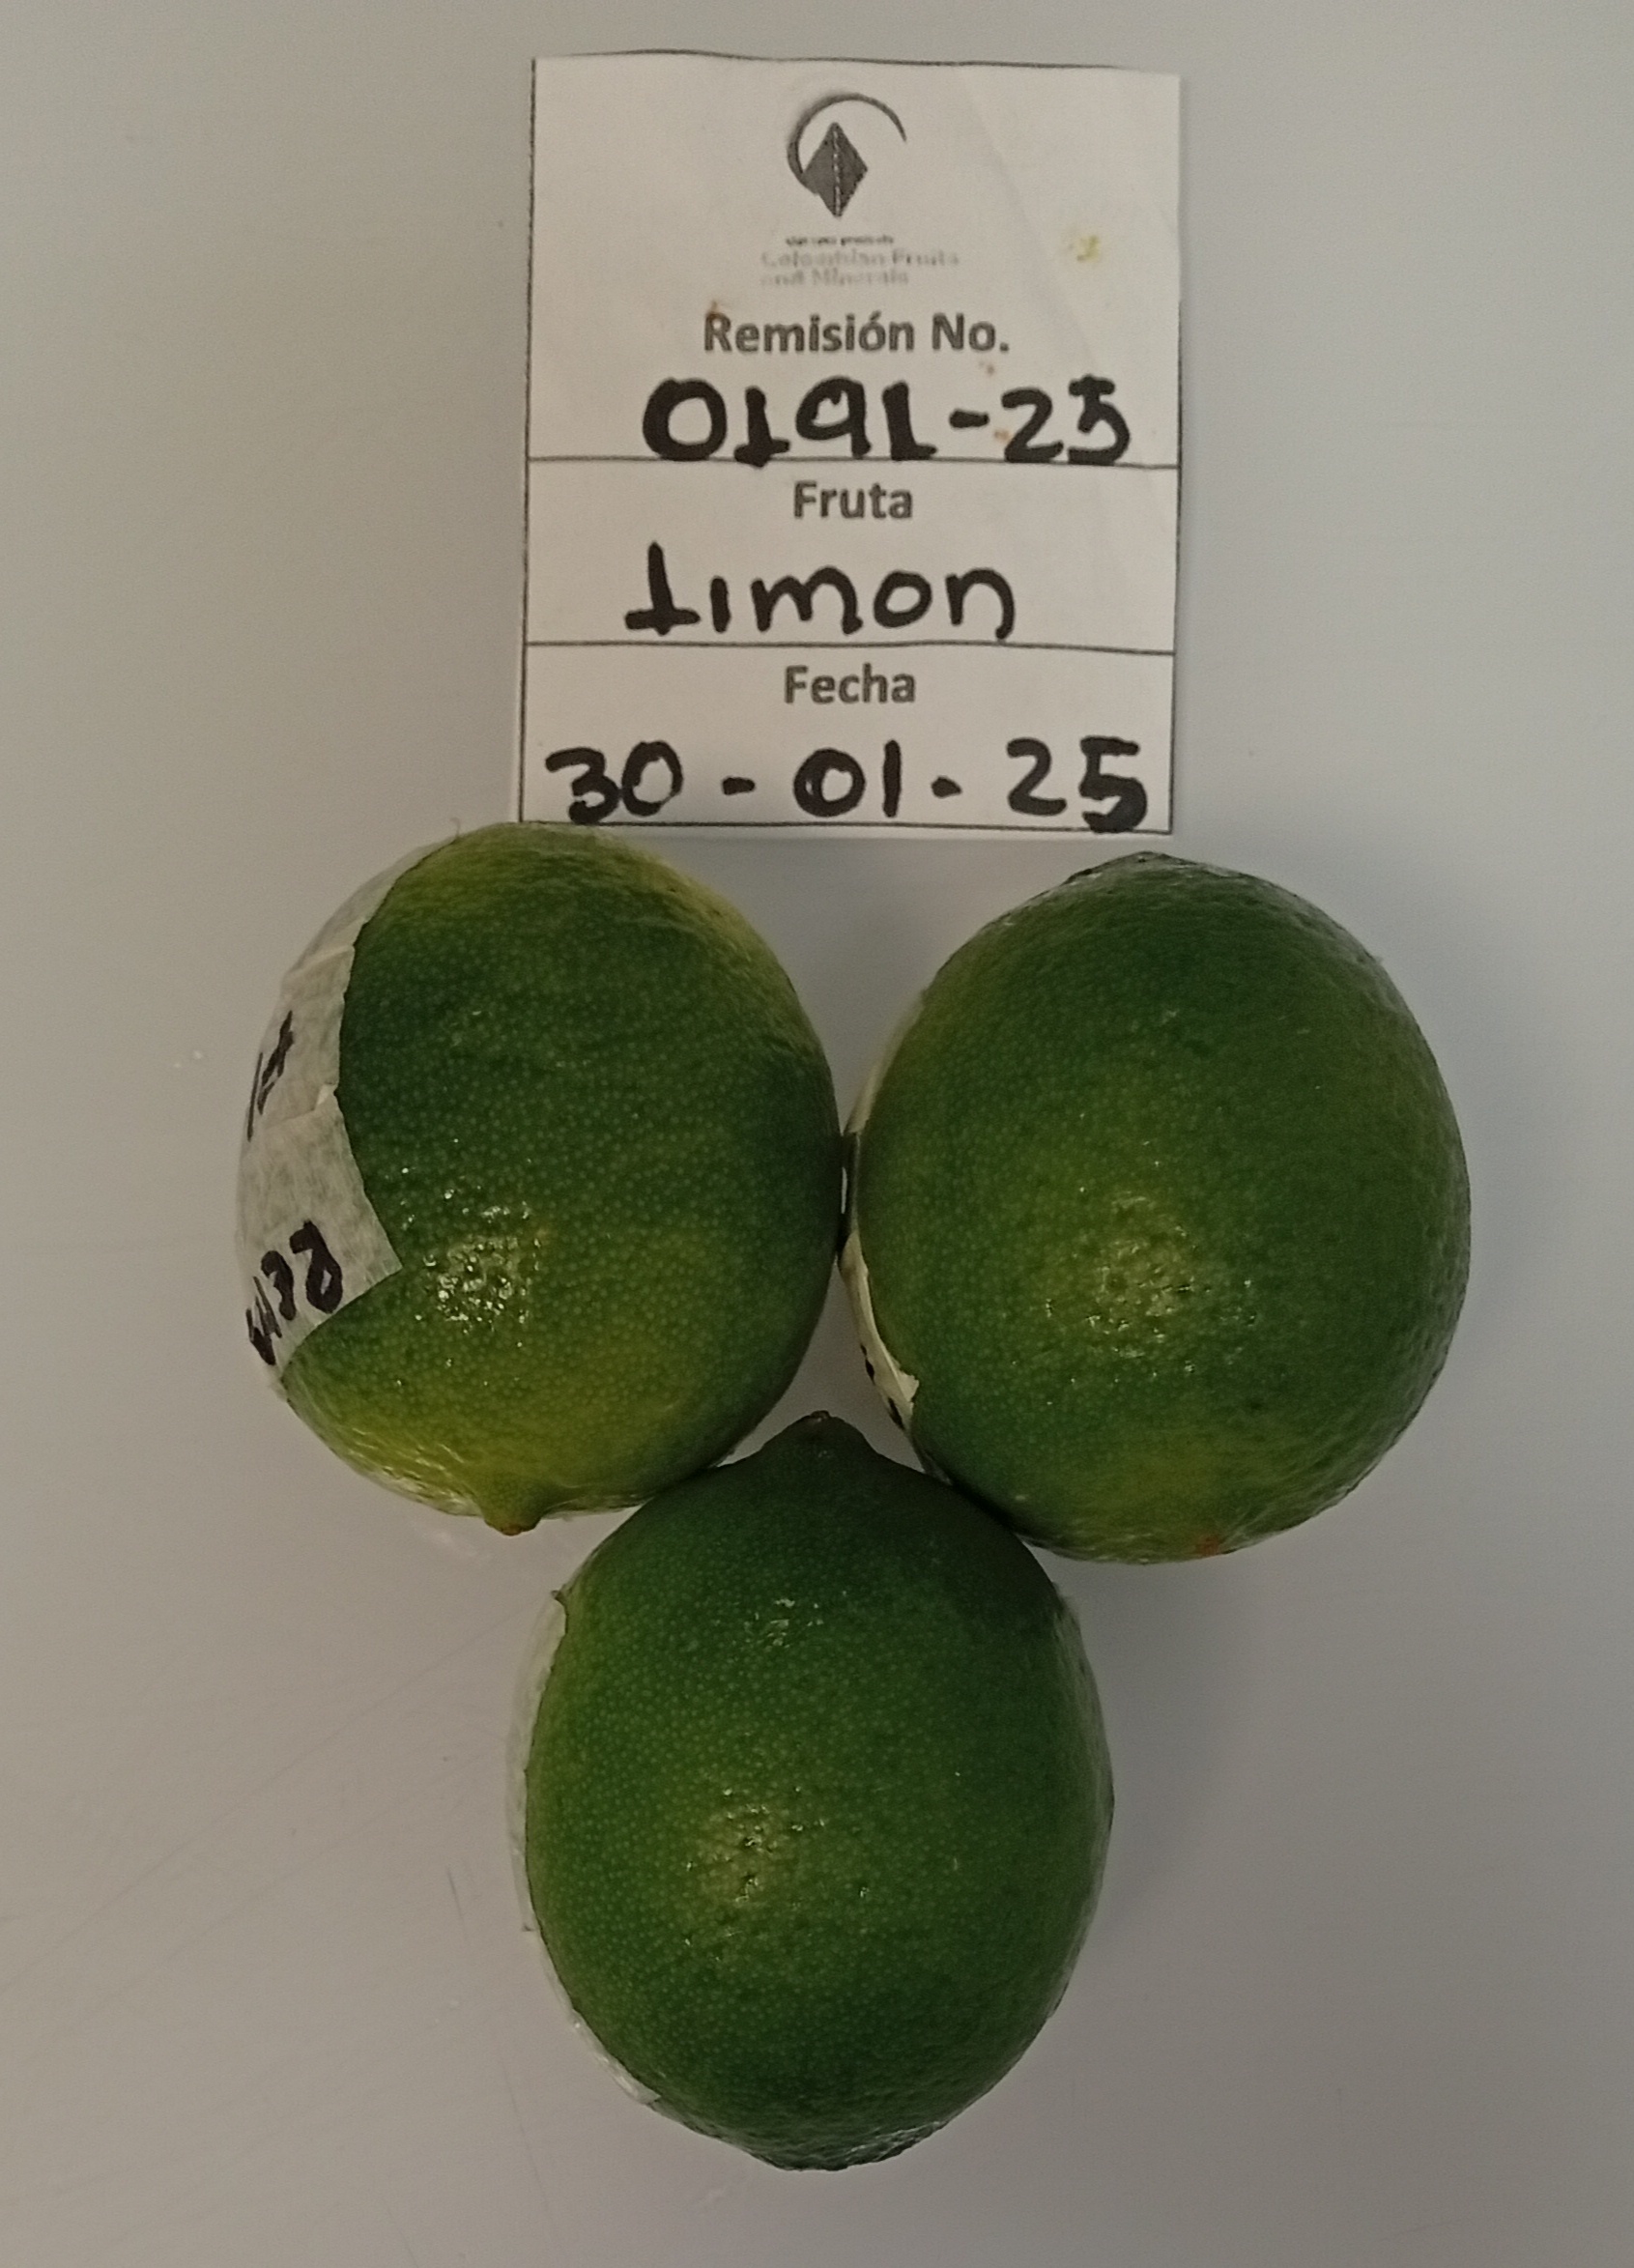 Colombian Fruits
and Minerals
Remisión No.
0191-25
Fruta
Limon
Fecha
30-01-25